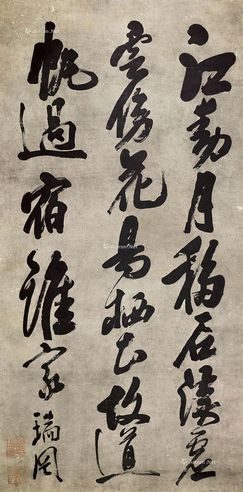 江動月移石溪虛
雲傍花鳥栖知故道
帆過宿誰家 瑞圖